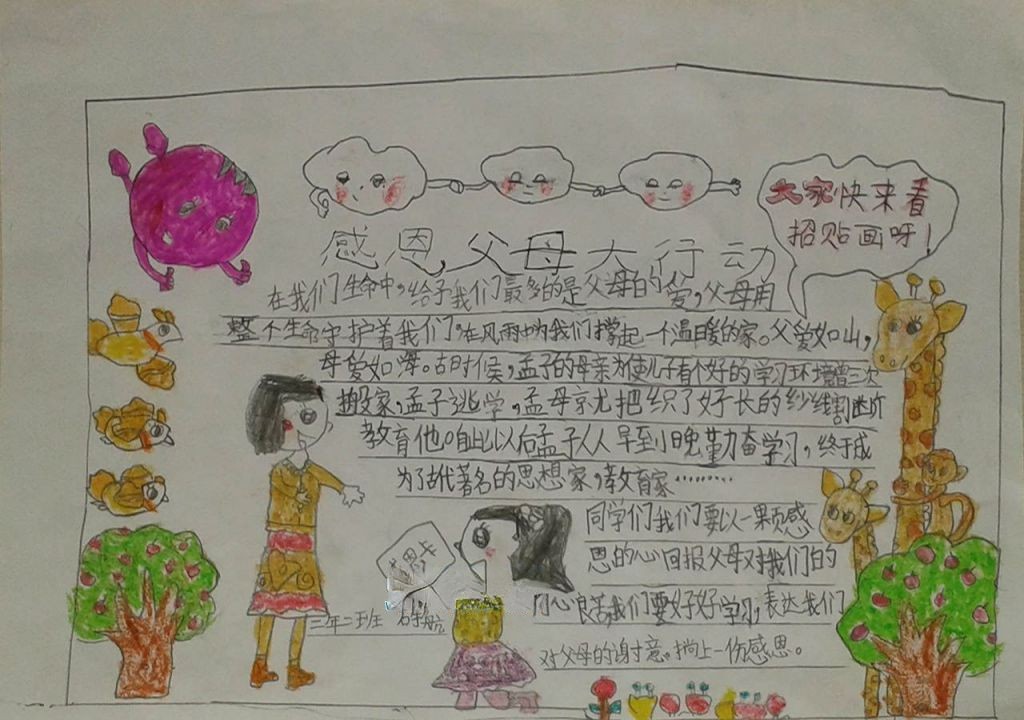 大家快来看
招贴画呀！
感恩父母大行动
在我们生命中，给予我们最多的是父母的爱，父母用
整个生命守护着我们，在风雨中为我们撑起一个温暖的家。父爱如山，
母爱如海。古时候，孟子的母亲为使儿子有个好的学习环境曾三次
搬家，孟子逃学，孟母就把织了好长的纱线割断
教育他。自此以后孟子从早到晚勤奋学习，终于成
为了古代著名的思想家，教育家………
同学们我们要以一颗感
恩的心回报父母对我们的
心良苦我们要好好学习，表达我们
对父母的谢意。捎上一份感恩。
恩卡
三年二班